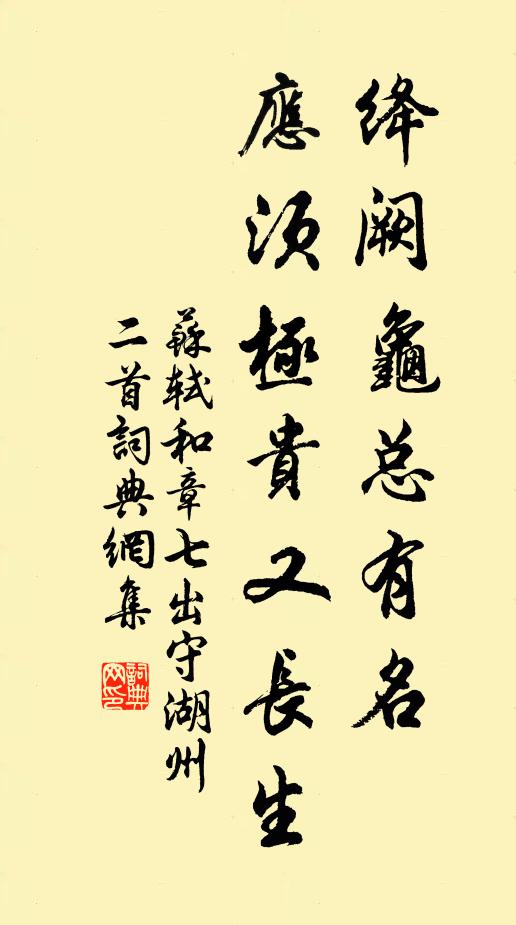 絳闕龜总有名
應須極貴又長生
蘇軾和章七出守湖州
二首詞典網集
詞典网印